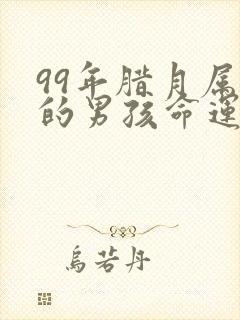 99年腊月属
的男孩命运
乌若丹